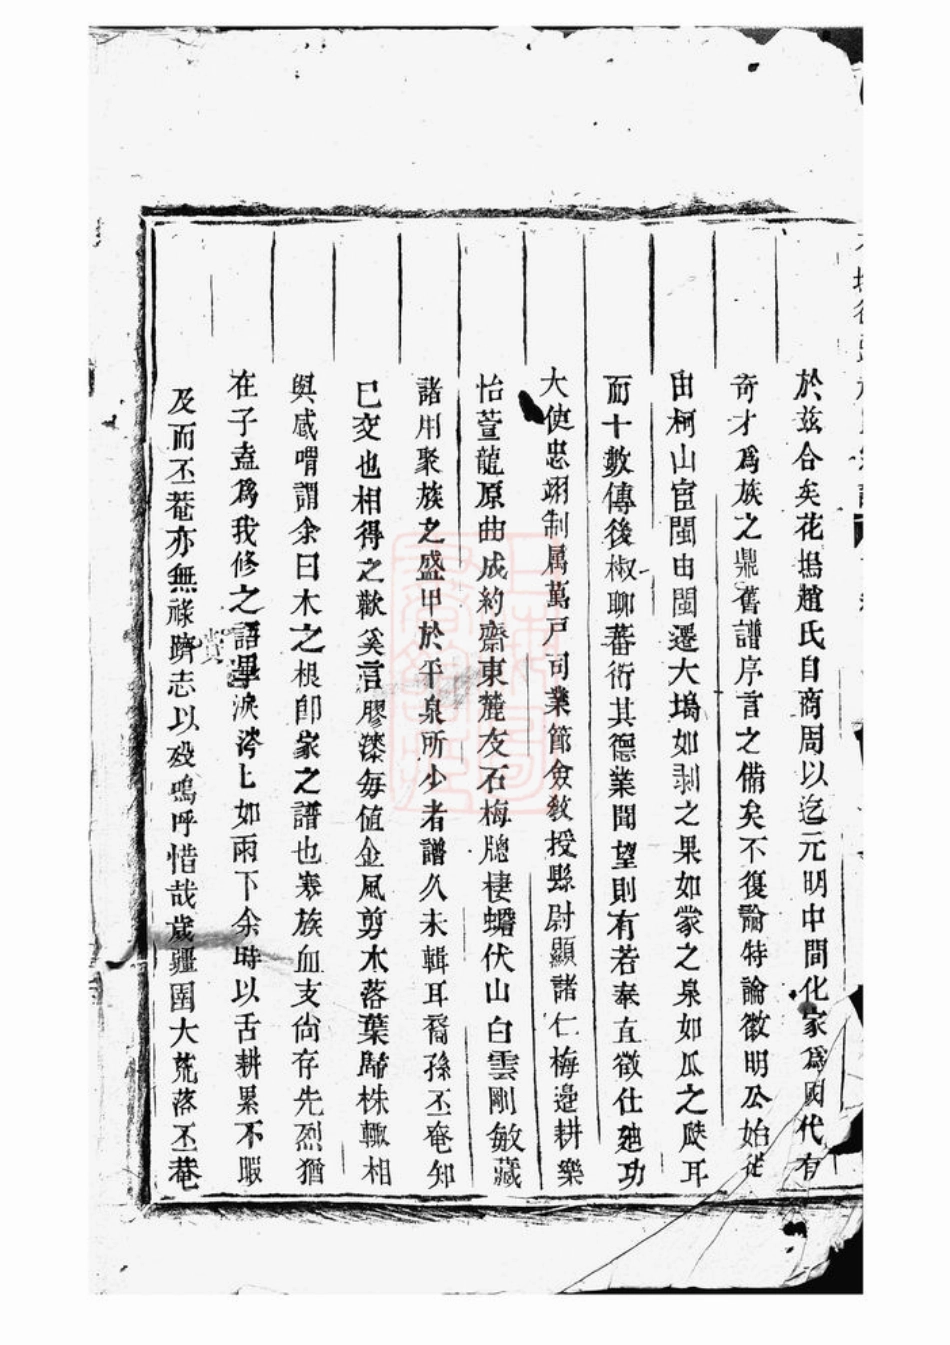 於兹合矣花塢趙氏自商周以迄元明中間化家爲國代有
奇才爲族之鼎舊譜序言之備矣不復論特論徽明公始從
由柯山宦閩由閩遷大塢如剥之果如蒙之泉如瓜之瓞耳
而十數傳後椒聊蕃衍其德業聞望則有若奉直徵仕廸功
大使忠翊制属萬戸司業節僉敎授縣尉顯諸仁梅邉耕樂
怡萱龍原曲成約齋東麓友石梅牕棲蟾伏山白雲剛敏藏
諸用聚族之盛甲於平泉所少者譜久未輯耳裔孫丕菴知
巳交也相得之歡奚言膠漆毎值金風剪木落葉歸株輒相
與感喟謂余曰木之根卽家之譜也寒族血支尙存先烈猶
在子盍爲我修之語畢淚涔匕如雨下余時以舌耕累不暇
及而丕菴亦無祿賫躋志以歿嗚呼惜哉歲疆圉大荒落丕菴